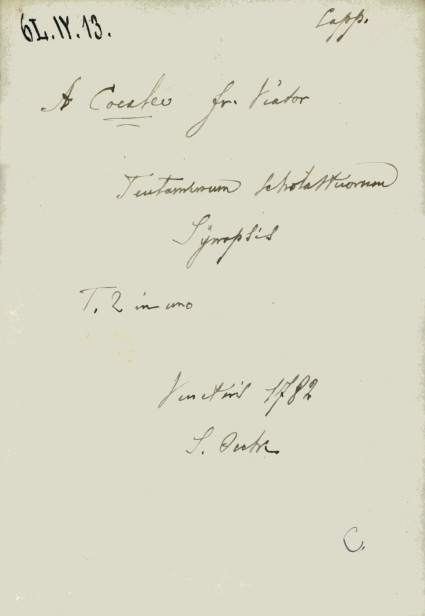 6L.IV.13.
Capp.
A Coca<leo fr. Viator
Tentaminum scholasticorum
Synopsis
T. 2 in uno
Venetiis 1782
S.
C.